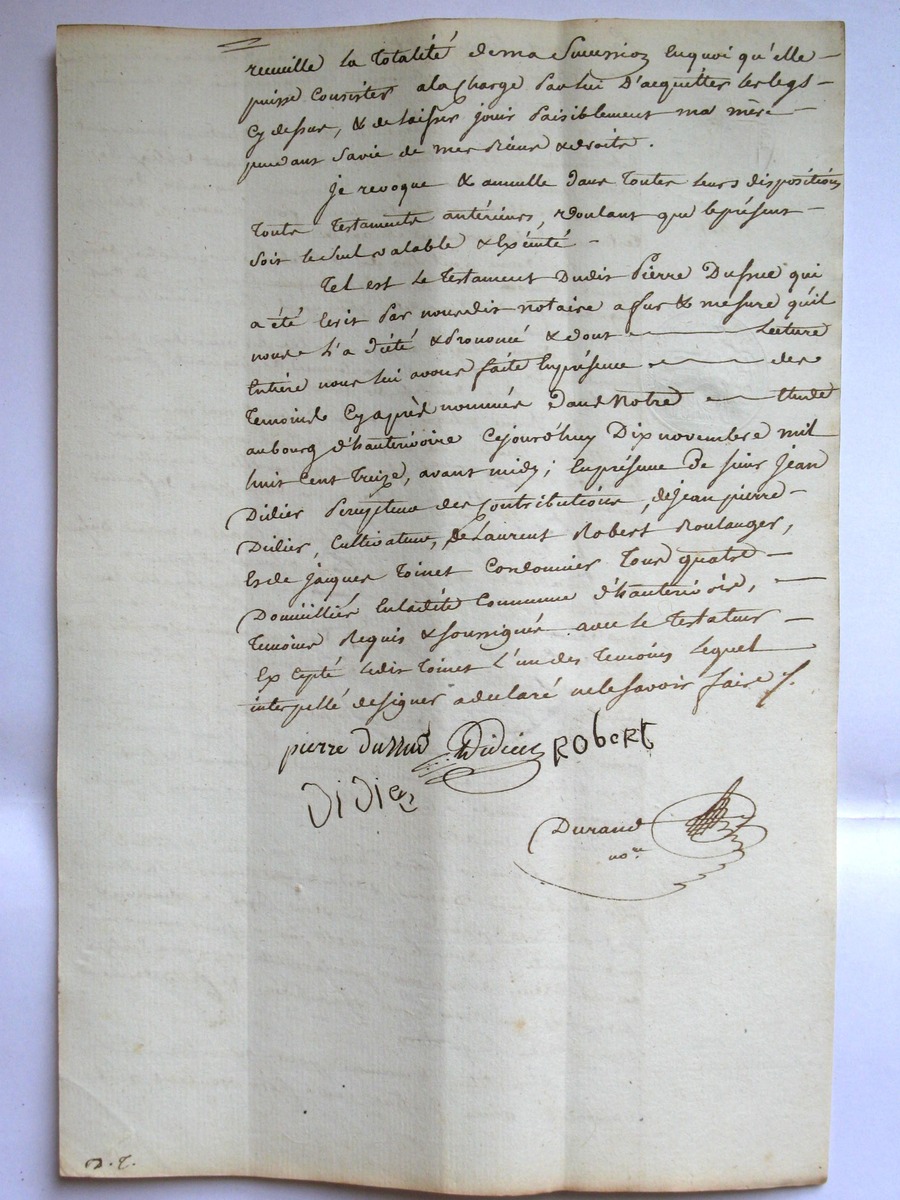 recueille la totalité de ma succession en quoi qu'elle
puisse consister a la charge par lui d'acquitter les legs
cy dessus, & de laisser jouir paisiblement ma mère
pendant sa vie de mes biens & droits.
Je revoque & annulle dans toutes leurs dispositions
touts testaments antérieurs, voulant que le présent
soit le seul valable & exécuté
Tel est le testament dudit Pierre qui
a été écrit par nousdit notaire a fur & mesure qu'il
nous l'a dicté & prononcé & dont lecture
entière nous lui avons faite en présence des
temoins cy après nommés dans notre étude
au bourg d'hauterivoire cejourd'huy dix novembre mil
huit cent treize, avant midy; en présence de sieur Jean
Didier percepteur des contributions, de jean pierre
Didier, cultivateur, de Laurent Robert Boulanger,
et de jacques Toinet cordonnier tous quatre
domicilliés en ladite commune d'hauterivoire,
temoins requis & soussignés avec le testateur
excepté ledit Toinet l'un des temoins lequel
interpellé de signer a declaré ne le savoir faire
pierre Didier Robert
Didier
Durand
no.re
D. T.